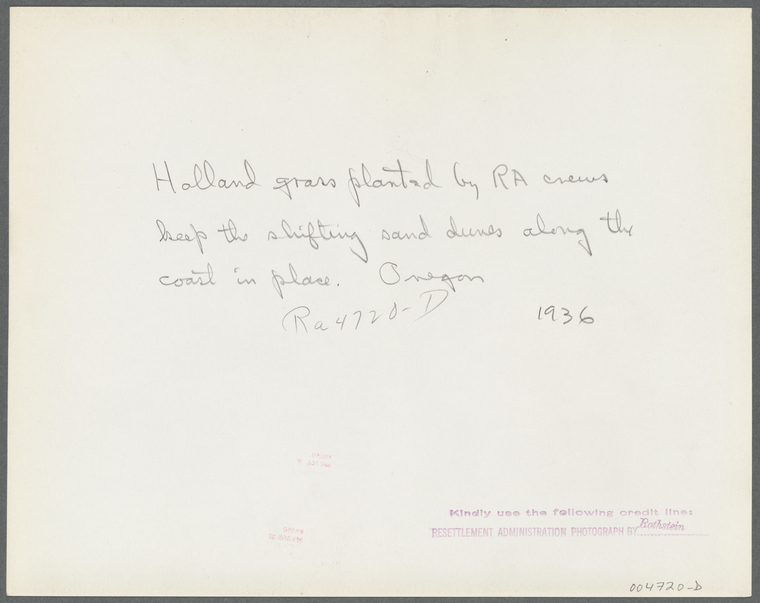 Holland grass planted by RA crews
keep the shifting sand dunes along the
coast in place. Oregon
Ra 4720-D 1936
Kindly use the following credit line:
RESETTLEMENT ADMINISTRATION PHOTOGRAPH BY Rothstein
004720-D